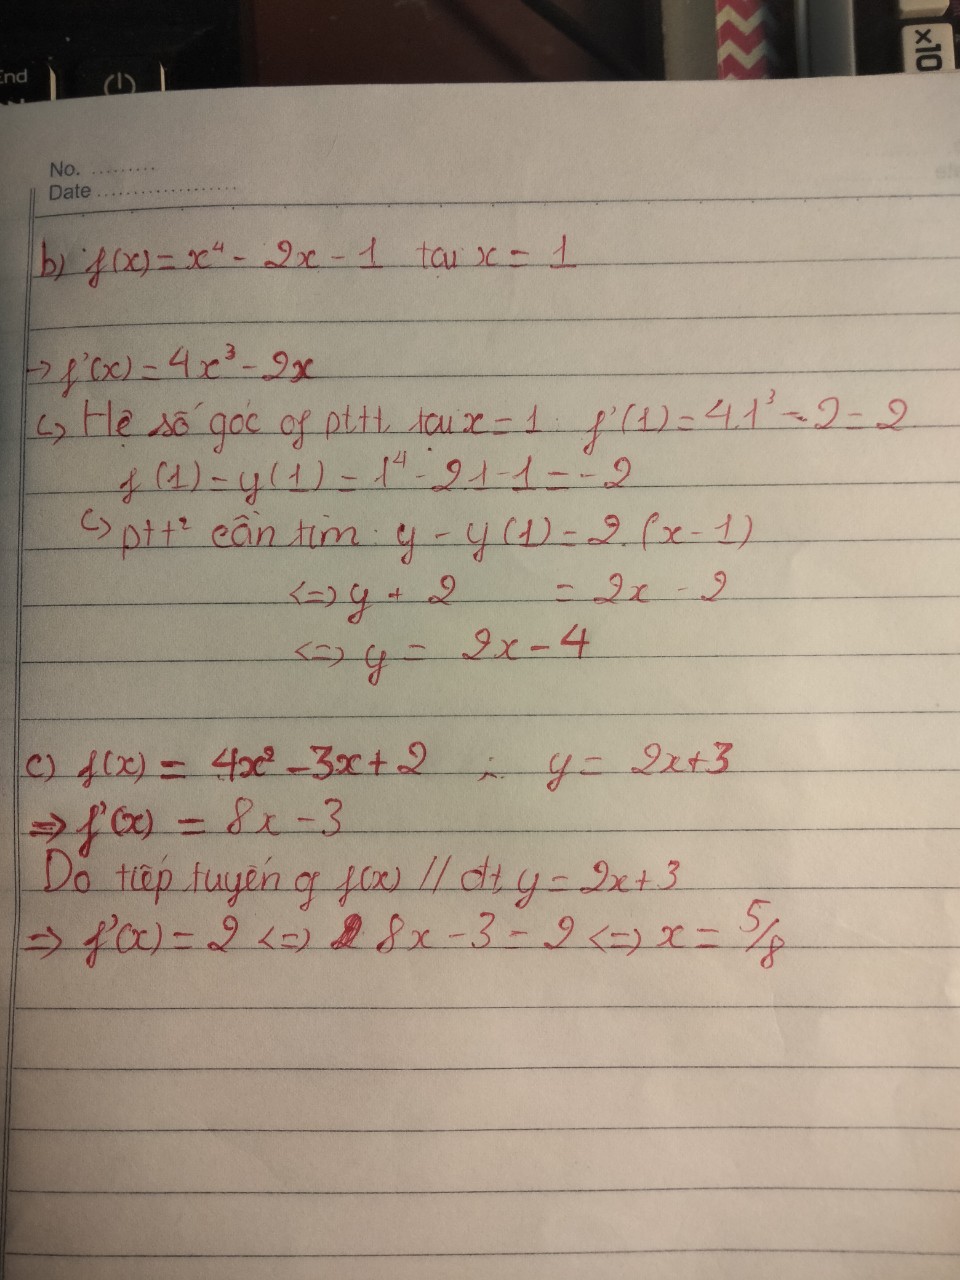 End
x10
No. .........
Date ..................
b) f(x) = x⁴ - 2x - 1 tại x = 1
→ f'(x) = 4x³ - 2x
↪ Hệ số góc of pttt tại x = 1 : f'(1) = 4.1³ - 2 = 2
f(1) = y(1) = 1⁴ - 2.1 - 1 = -2
↪ ptt² cần tìm : y - y(1) = 2.(x - 1)
<=> y + 2 = 2x - 2
<=> y = 2x - 4
c) f(x) = 4x² - 3x + 2 ; y = 2x + 3
=> f'(x) = 8x - 3
Do tiếp tuyến of f(x) // đt y = 2x + 3
=> f'(x) = 2 <=> 8x - 3 = 2 <=> x = 5/8